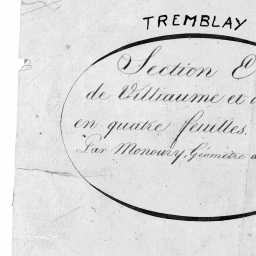 TREMBLAY
Section E
de Villiaume et d
en quatre feuilles.
Par Monoury, Géomètre a